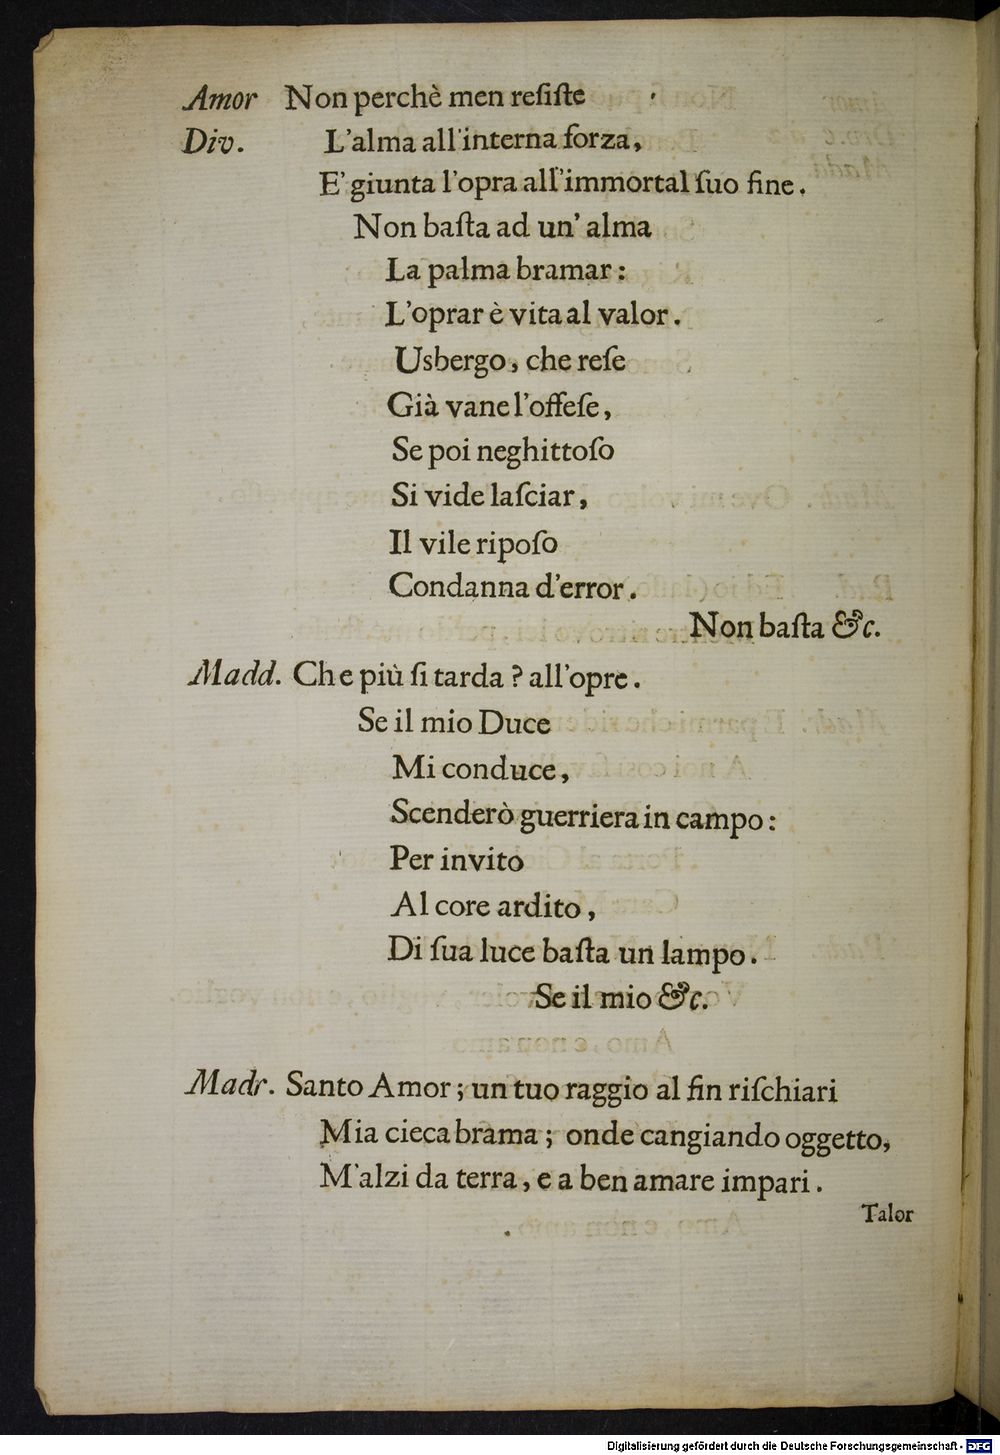 Amor Non perchè men reſiſte
Div. L'alma all'interna forza,
E' giunta l'opra all'immortal ſuo fine.
Non baſta ad un' alma
La palma bramar:
L'oprar è vita al valor.
Usbergo, che reſe
Già vane l'offeſe,
Se poi neghittoſo
Si vide laſciar,
Il vile ripoſo
Condanna d'error.
Non baſta &c.
Madd. Che più ſi tarda? all'opre.
Se il mio Duce
Mi conduce,
Scenderò guerriera in campo:
Per invito
Al core ardito,
Di ſua luce baſta un lampo.
Se il mio &c.
Madr. Santo Amor; un tuo raggio al fin riſchiari
Mia cieca brama; onde cangiando oggetto,
M'alzi da terra, e a ben amare impari.
Talor
Digitalisierung gefördert durch die Deutsche Forschungsgemeinschaft - DFG